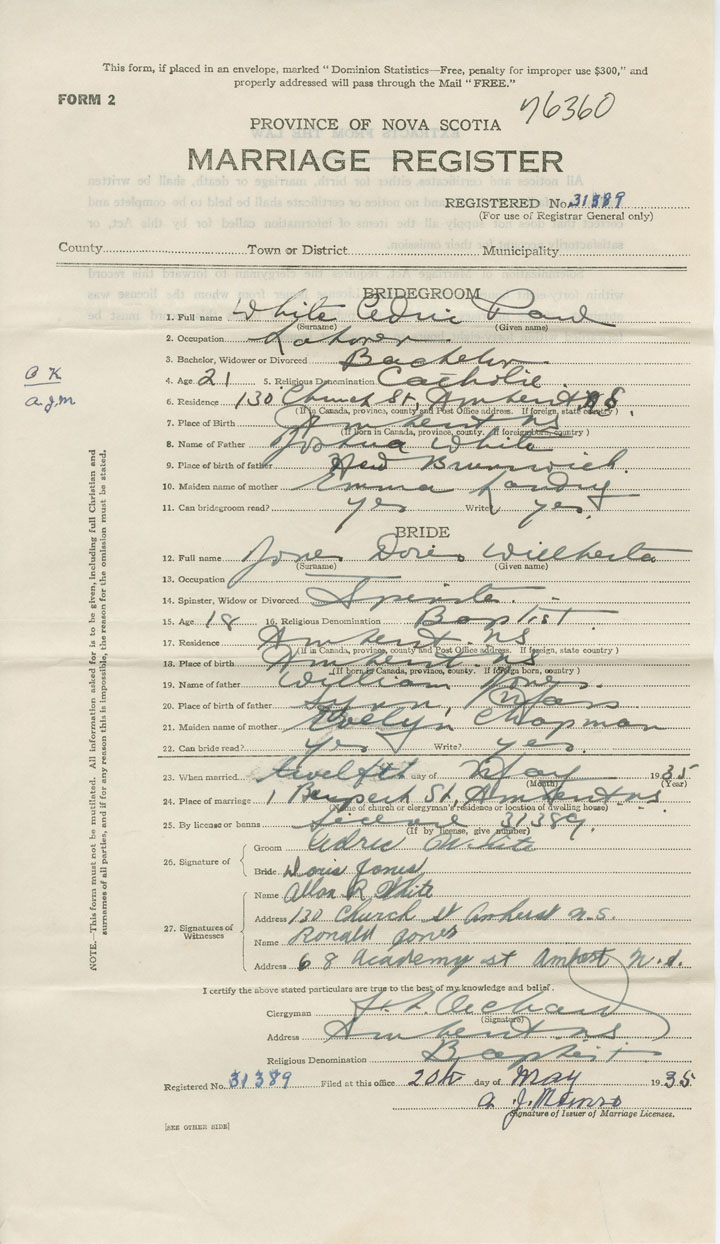 This form, if placed in an envelope, marked "Dominion Statistics—Free, penalty for improper use $300," and
properly addressed will pass through the Mail "FREE."
FORM 2
76360
PROVINCE OF NOVA SCOTIA
MARRIAGE REGISTER
REGISTERED No. 31389
(For use of Registrar General only)
County Town or District Municipality
BRIDEGROOM
1. Full name White Cedric Paul
(Surname) (Given name)
2. Occupation Laborer
3. Bachelor, Widower or Divorced Bachelor
O K
4. Age 21 5. Religious Denomination Catholic
a.J.M
6. Residence 130 Church St, Amherst N S.
(If in Canada, province, county and Post Office address. If foreign, state country)
7. Place of Birth Amherst NS
(If born in Canada, province, county. If foreign born, country)
8. Name of Father Joshua White
9. Place of birth of father New Brunswick.
10. Maiden name of mother Emma Landry
11. Can bridegroom read? yes Write? yes
BRIDE
12. Full name Jones Doris Wilhelta
(Surname) (Given name)
13. Occupation
14. Spinster, Widow or Divorced Spinster
15. Age 18 16. Religious Denomination Baptist
17. Residence Amherst. NS
(If in Canada, province, county and Post Office address. If foreign, state country)
18. Place of birth Amherst NS
(If born in Canada, province, county. If foreign born, country)
19. Name of father William Jones.
20. Place of birth of father
21. Maiden name of mother Evelyn Chapman
22. Can bride read? yes Write? yes.
23. When married twelfth day of May 1935
(Month) (Year)
24. Place of marriage 1 St, Amherst NS
(Name of church or clergyman's residence or location of dwelling house)
25. By license or banns License 31389.
(If by license, give number)
26. Signature of
Groom Cedric White
Bride Doris Jones
27. Signatures of
Witnesses
Name Allan R White
Address 130 Church st Amherst N.S.
Name Ronald Jones
Address 68 Academy st Amherst N.S.
NOTE.—This form must not be mutilated. All information asked for is to be given, including full Christian and
surnames of all parties, and if for any reason this is impossible, the reason for the omission must be stated.
I certify the above stated particulars are true to the best of my knowledge and belief.
Clergyman
(Signature)
Address Amherst NS
Religious Denomination Baptist
Registered No. 31389 Filed at this office 20th day of May 1935
A. J. Munro
Signature of Issuer of Marriage Licenses.
[SEE OTHER SIDE]